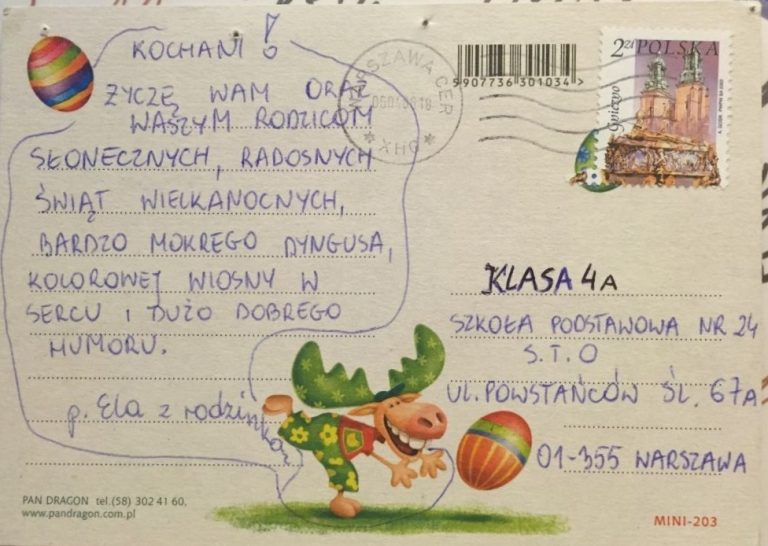 KOCHANI!
ŻYCZĘ WAM ORAZ
WASZYM RODZICOM
SŁONECZNYCH, RADOSNYCH
ŚWIĄT WIELKANOCNYCH,
BARDZO MOKREGO DYNGUSA,
KOLOROWEJ WIOSNY W
SERCU I DUŻO DOBREGO
HUMORU.
p. Ela z rodzinką
PAN DRAGON tel.(58) 302 41 60,
www.pandragon.com.pl
WARSZAWA CER
XHO
9907736301034>
2zł POLSKA
Gniezno
KLASA 4A
SZKOŁA PODSTAWOWA NR 24
S.T.O
UL. POWSTAŃCÓW ŚL. 67A
01-355 WARSZAWA
MINI-203